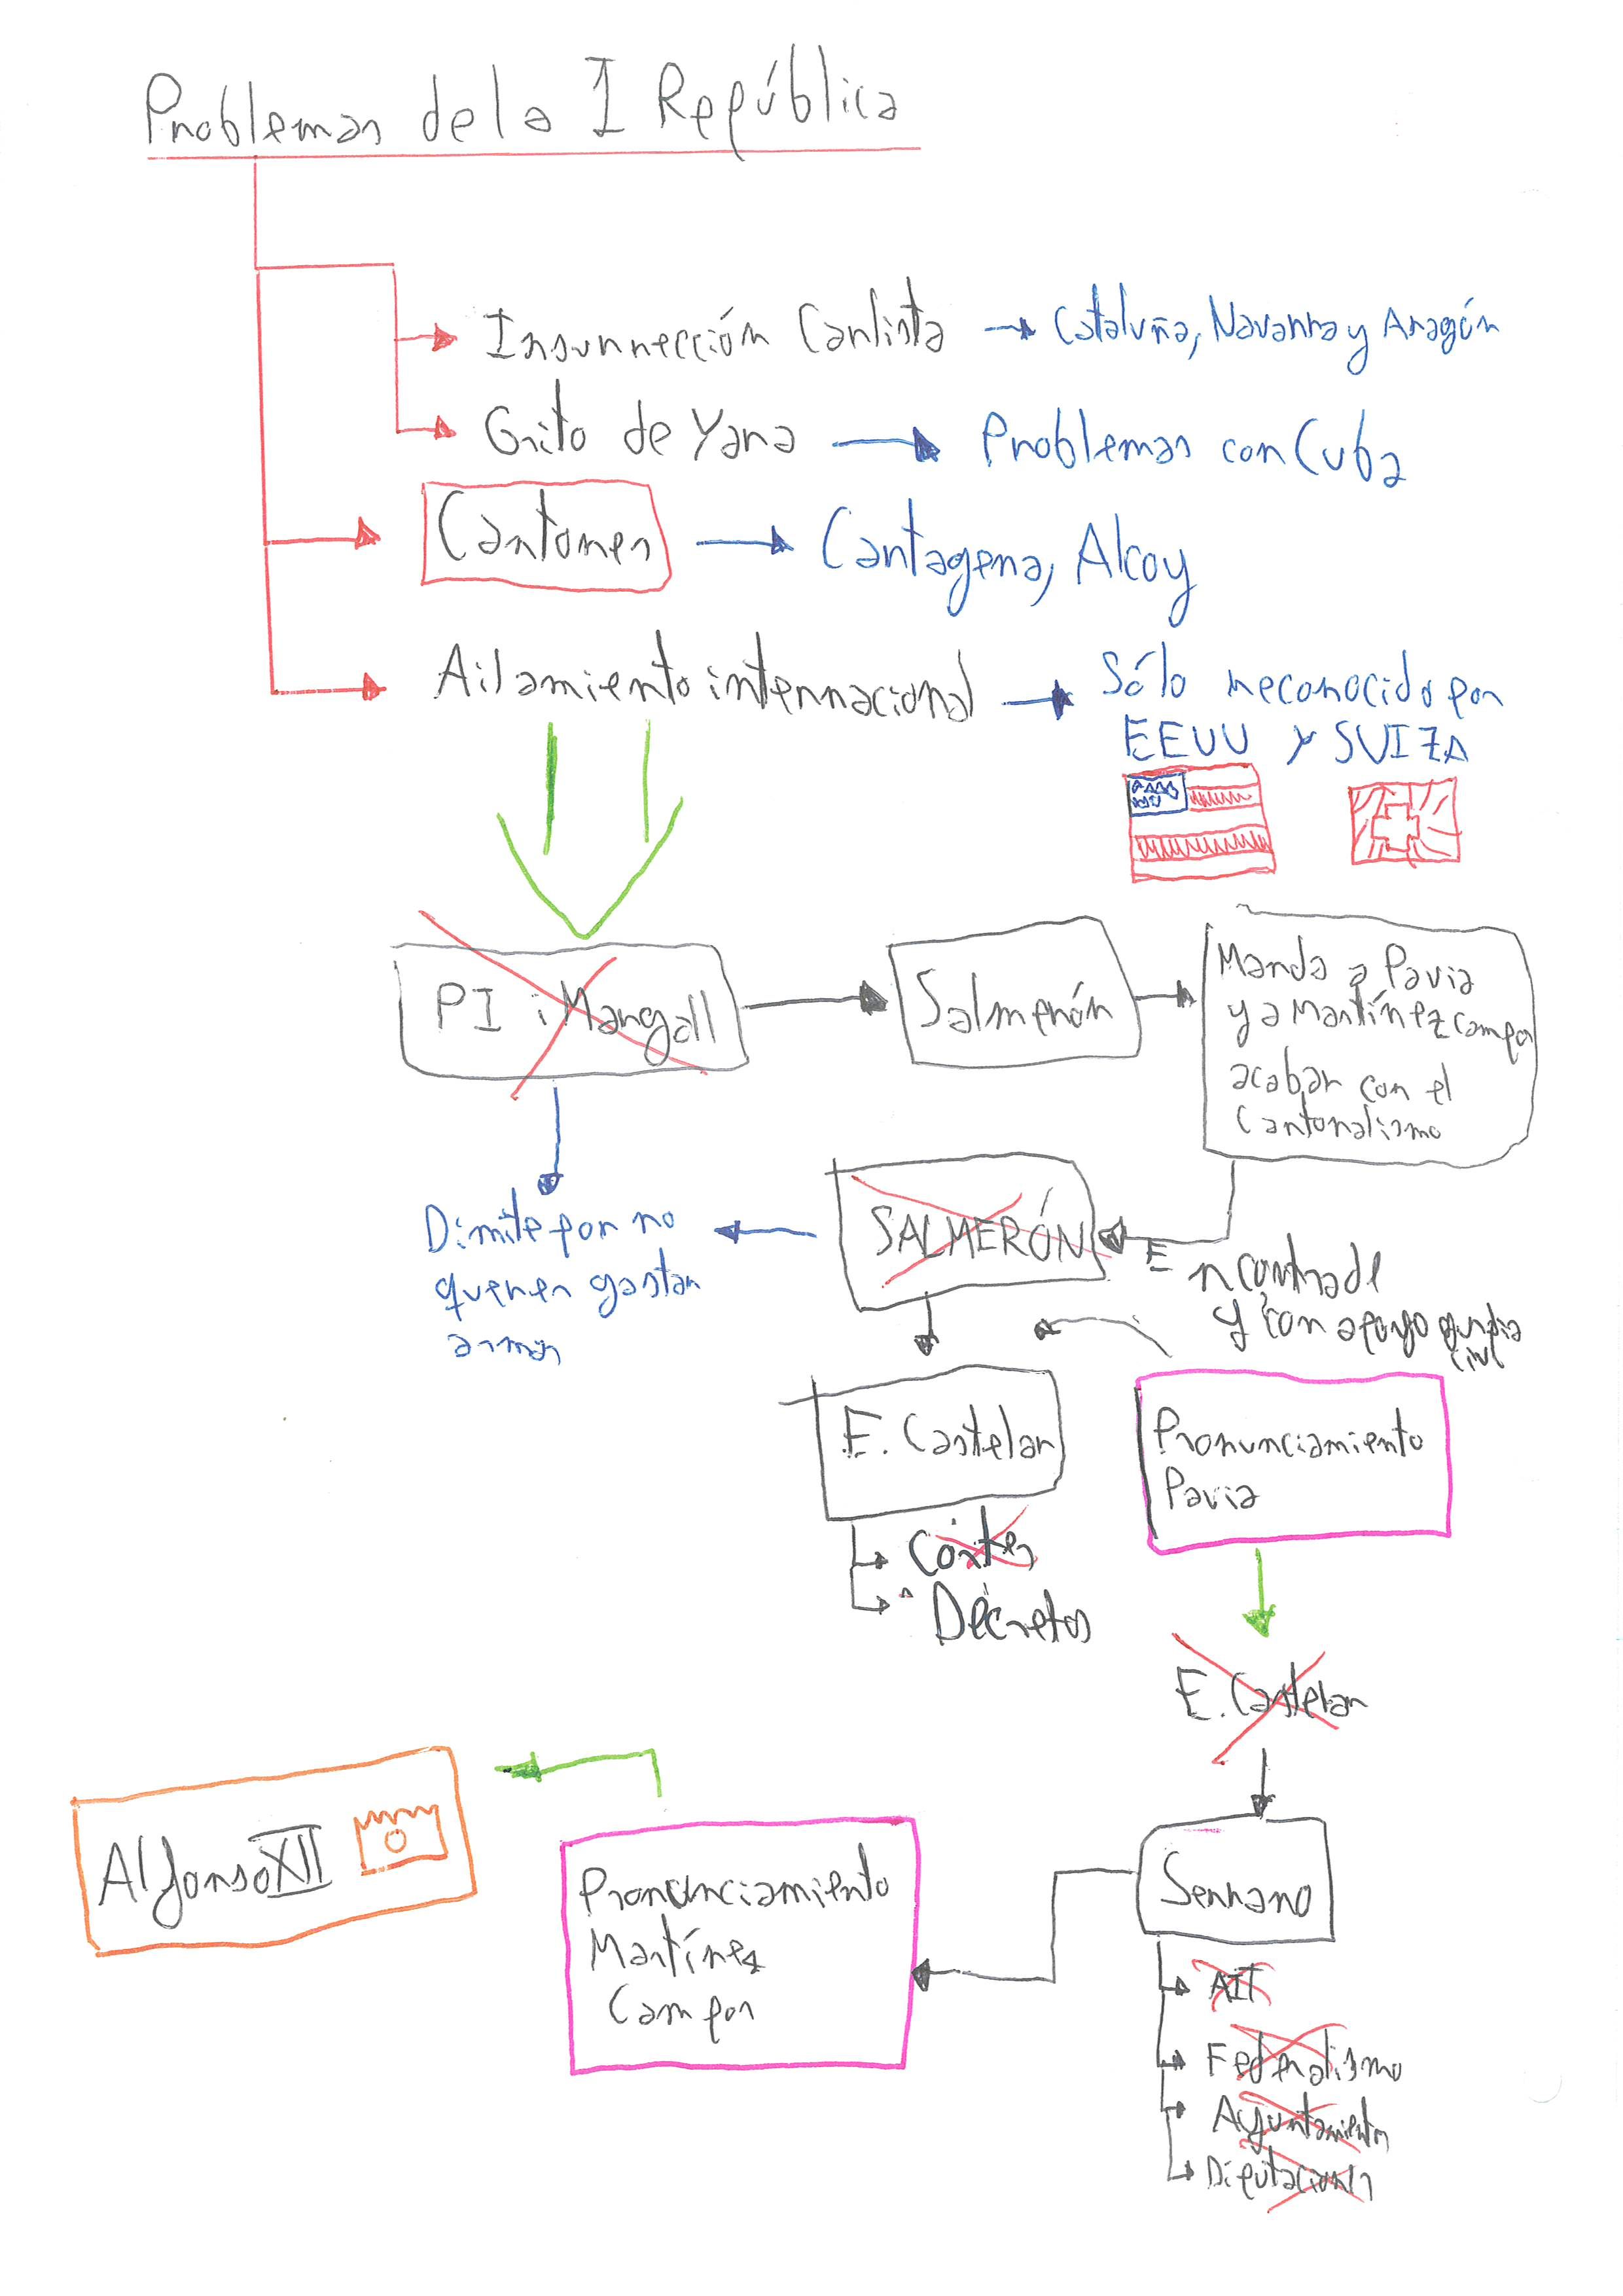 Problemas de la I República
Insurrección Carlista → Cataluña, Navarra y Aragón
Grito de Yara → Problemas con Cuba
Cantones → Cartagena, Alcoy
Ailamiento internacional → Sólo reconocido por
EEUU Y SUIZA
PI i Margall
Salmerón
Manda a Pavia
y a Martínez campos
acabar con el
Cantonalismo
Dimite por no
querer gastar
armas
SALMERÓN
En contra de l
y con apoyo guardia
civil
E. Castelar
Cortes
Decretos
Pronunciamiento
Pavia
E. Castelar
Serrano
AIT
Federalismo
Ayuntamientos
Diputaciones
Pronunciamiento
Martínez
Campos
Alfonso XII